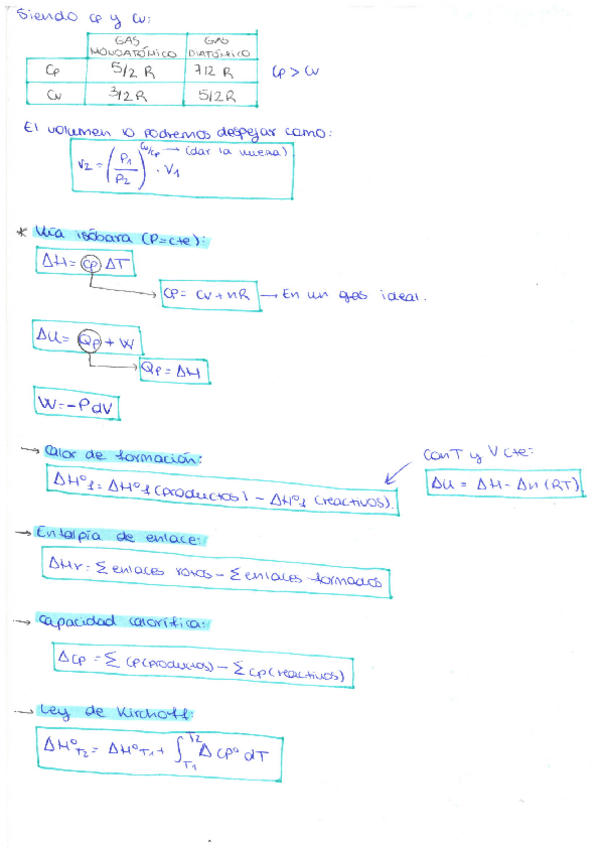 Siendo Cp y Cv:
GAS MONOATÓMICO GAS DIATÓMICO
Cp 5/2 R 7/2 R Cp > Cv
Cv 3/2 R 5/2 R
El volumen lo podremos despejar como:
V2 = (P1/P2)^Cv/Cp · V1 → (dar la vuelta)
* Vía isóbara (P=cte):
ΔH = Cp ΔT
Cp = Cv + nR → En un gas ideal.
ΔU = Qp + W
Qp = ΔH
W = -PdV
→ Calor de formación:
ΔHºf = ΔHºf (productos) - ΔHºf (reactivos).
Con T y V cte:
ΔU = ΔH - Δn (RT)
→ Entalpía de enlace:
ΔHr = Σ enlaces rotos - Σ enlaces formados
→ Capacidad calorífica:
ΔCp = Σ Cp (productos) - Σ Cp (reactivos)
→ Ley de Kirchoff:
ΔHºT2 = ΔHºT1 + ∫T1 T2 ΔCpº dT